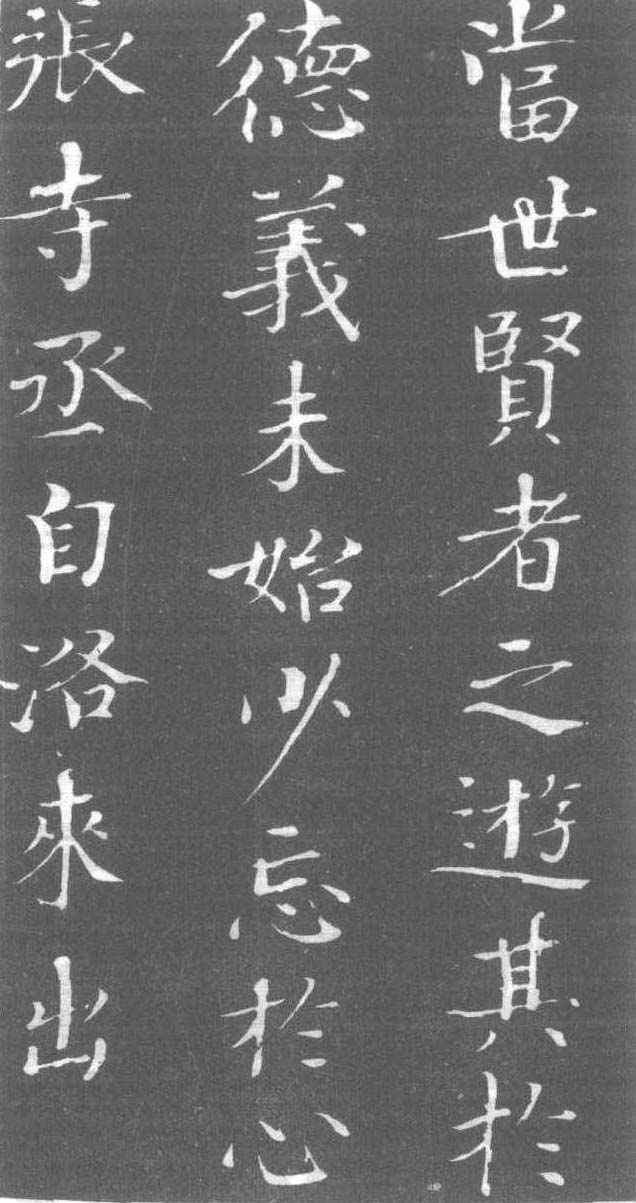 當世賢者之遊其於
德義未始少忘於心
張寺丞自洛來出